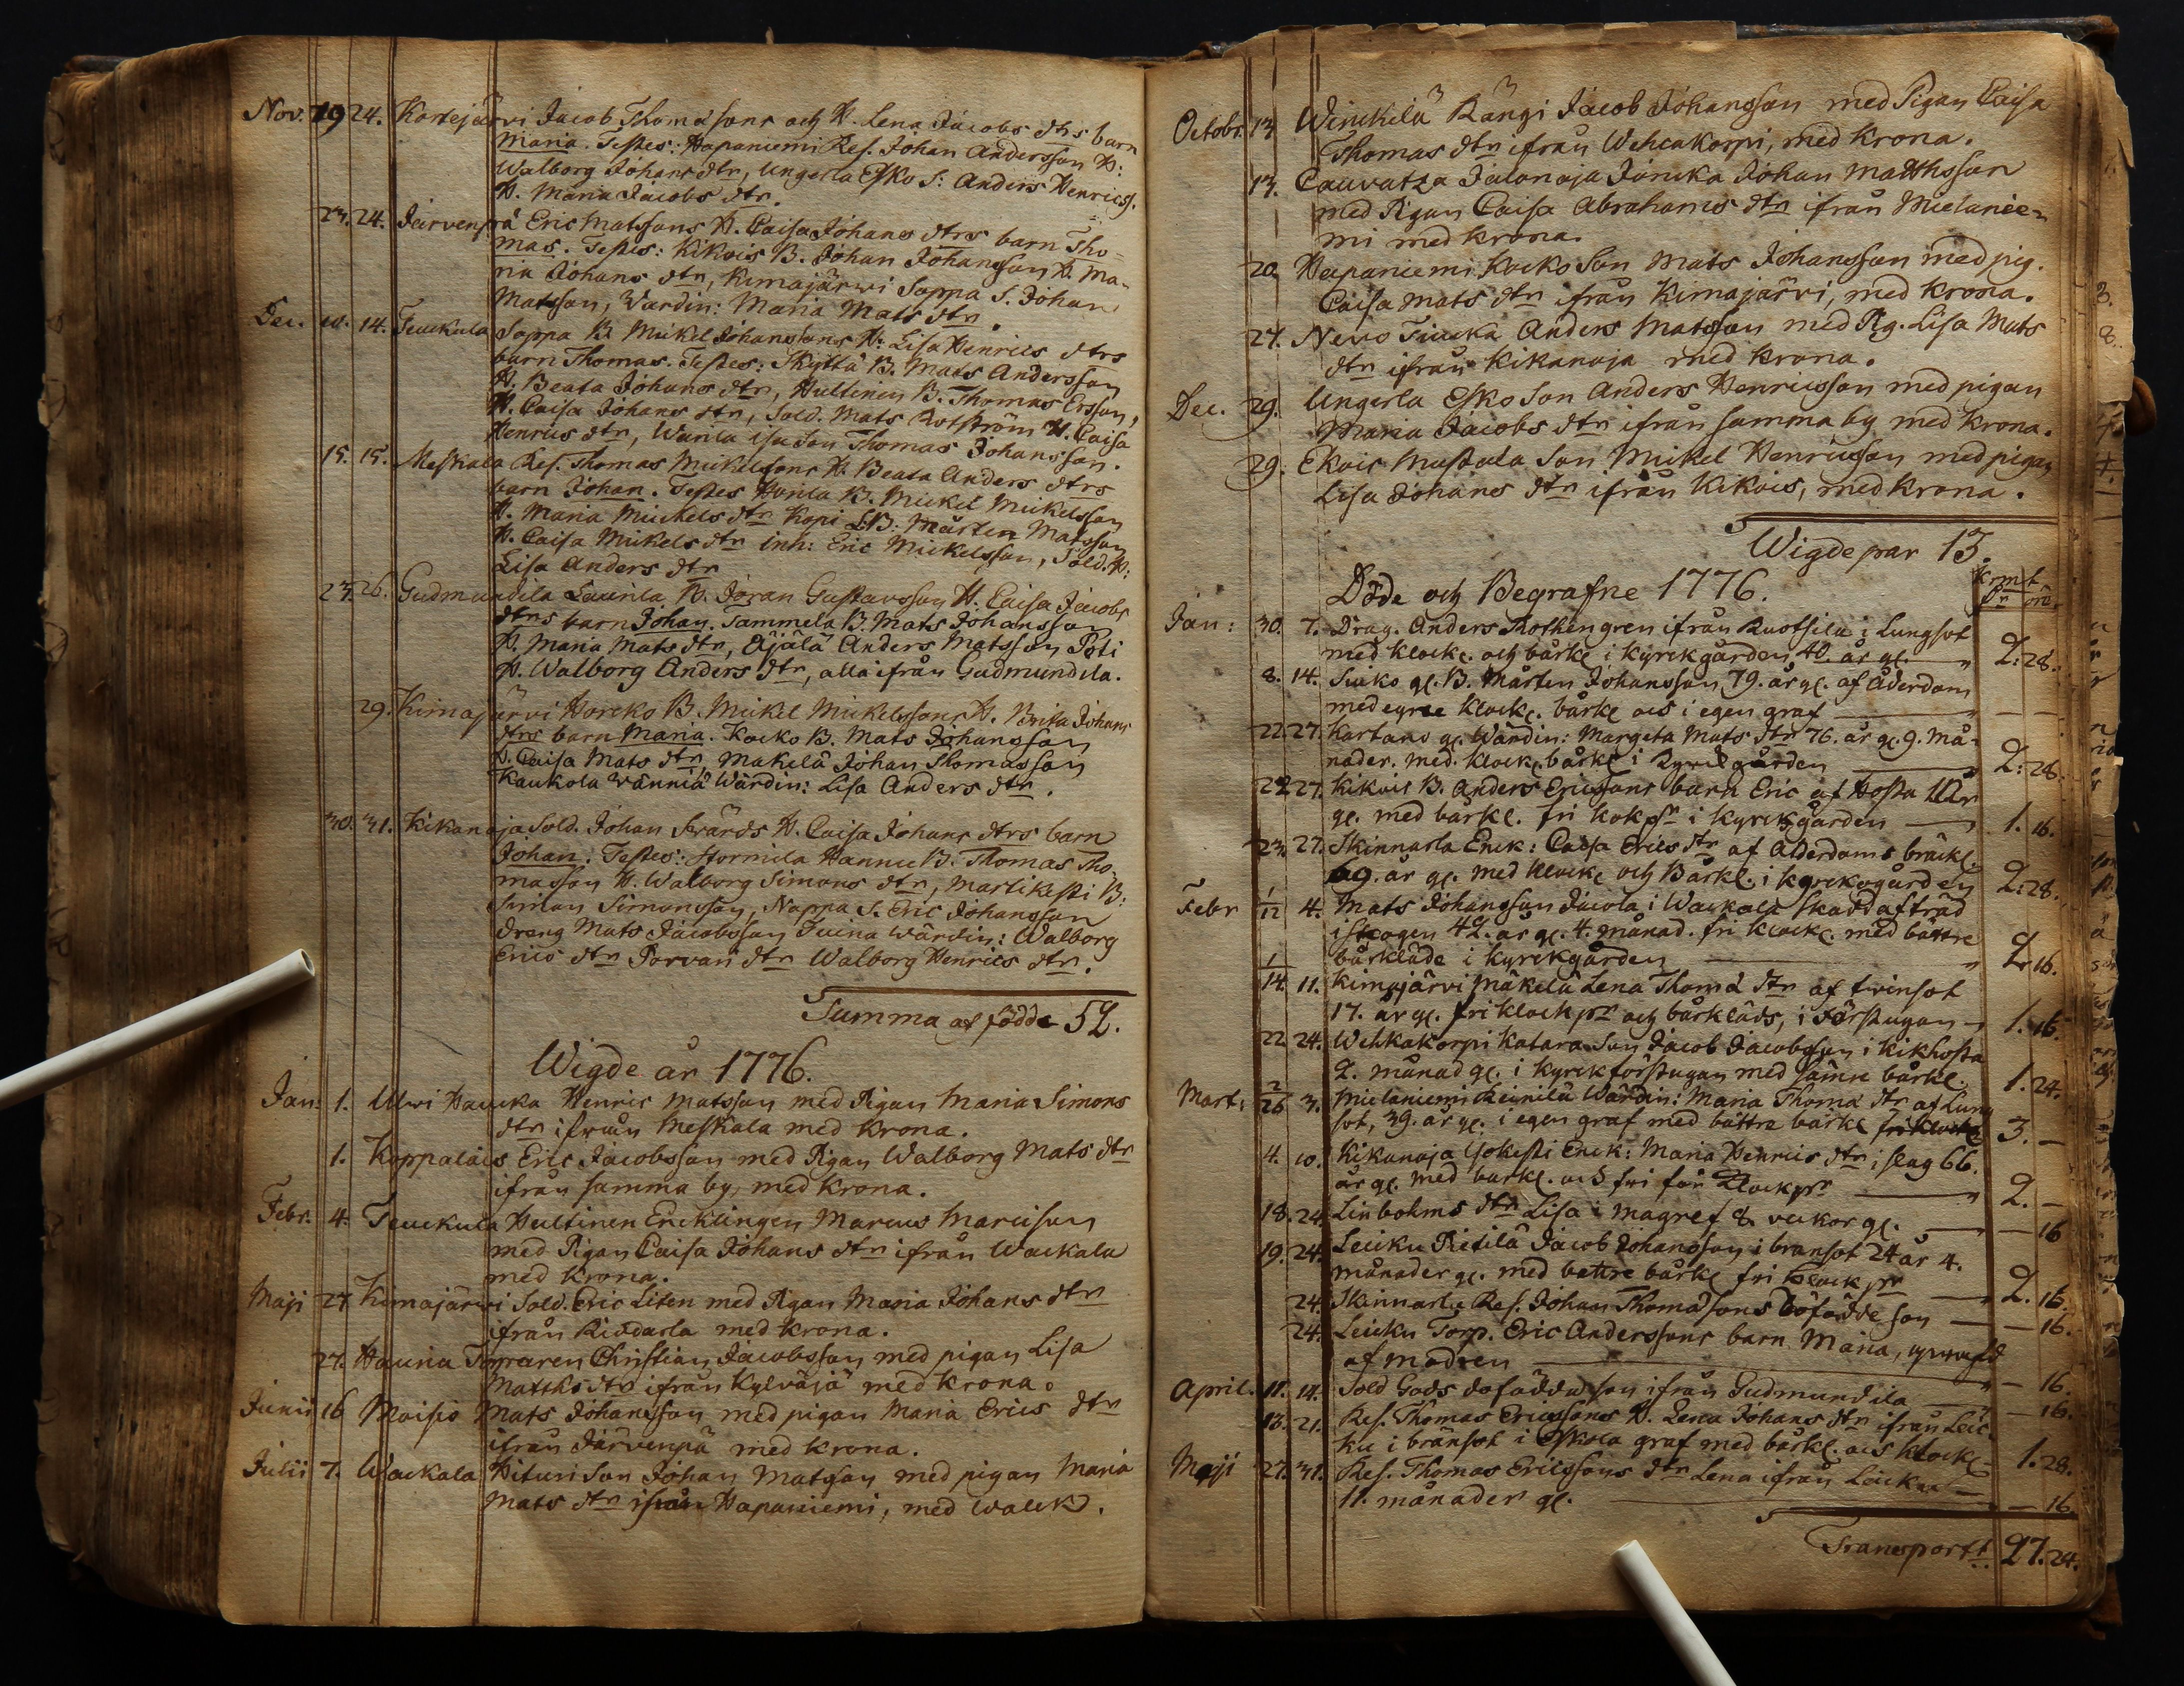 Nov. 19 24. Kortejärvi Jacob Thomassons och H. Lena Jacobs dtrs barn
Maria. Testes: Hapaniemi Res. Johan Andersson H:
Walborg Johans dtr, Ungerla Esko S: Anders Henricss.
H. Maria Jacobs dtr.
23. 24. Järvenpä Eric Matssons H. Caisa Johans dtrs barn Tho=
mas. Testes: Kikois B. Johan Johansson H. Ma=
ria Johans dtr, Kimajärwi Soppa S. Johan
Matsson, Wärdin: Maria Mats dtr.
Dec. 10. 14. Teuckula Soppa B. Mickel Johanssons H: Lisa Henrics dtrs
barn Thomas. Testes: Skyttä B. Mats Andersson
H. Beata Johans dtr, Hultinen B. Thomas Ersson,
H. Caisa Johans dtr, Sold. Mats Rotström H. Caisa
Henrics dtr, Warila Isa Son Thomas Johansson.
15. 15. Meskala Res. Thomas Mickelssons H. Beata Anders dtrs
barn Johan. Testes Horila B. Mickel Mickelsson
H. Maria Mickels dtr Kopi LB: Mårten Matsson
H. Caisa Mickels dtr inh: Eric Mickelsson, Sold. H:
Lisa Anders dtr
23. 26. Gudmundila Laurila B. Jöran Gustavsson H. Caisa Jacobs
dtrs barn Johan. Tammela B. Mats Johansson
H. Maria Mats dtr, Äjälä Anders Matsson Poti
H. Walborg Anders dtr, alla ifrån Gudmundila.
29. Kimajärvi Horcko B. Mickel Mickelssons H. Brita Johans
dtrs barn Maria. Kocko B. Mats Johansson
H. Caisa Mats dtr, Makelä Johan Thomasson
Kaukola Vänniä Wärdin: Lisa Anders dtr.
30. 31. Kikanoja Sold. Johan Svärds H. Caisa Johans dtrs barn
Johan. Testes: Stormila Hannu B. Thomas Tho=
masson H. Walborg Simons dtr, Martikesti B:
Simon Simonsson, Nappa S. Eric Johansson
dräng Mats Jacobsson Tuina Wärdin: Walborg
Erics dtr Porvari dtr Walborg Henrics dtr.
Summa af födde 52.
Wigde år 1776.
Jan: 1. Ulvi Haucka Henric Matsson med Pigan Maria Simons
dtr ifrån Meskala med Krona.
1. Koppalais Eric Jacobsson med Pigan Walborg Mats dtr
ifrån samma by, med Krona.
Febr. 4. Teuckula Hultinen Encklingen Marcus Marcisson
med Pigan Caisa Johans dtr ifrån Wackala
med Krona.
Maji 27 Kimajärwi Sold. Eric Liten med Pigan Maria Johans dtr
ifrån Riddarla med Krona.
27. Hauria Torparen Christian Jacobsson med pigan Lisa
Matths dtr ifrån Kylväjä med Krona.
Junii 16 Moisio Mats Johansson med pigan Maria Erics dtr
ifrån Järvenpä med Krona.
Julii 7. Wackala Hituri Son Johan Matsson med pigan Maria
Mats dtr ifrån Hapaniemi, med Walck.
Octobr. 13 Winckilä Rängi Jacob Johansson med Pigan Caisa
Thomas dtr ifrån Wehcakorpi, med Krona.
13. Cauvatza Jalonoja Jöncka Johan Matthsson
med Pigan Caisa Abrahams dtr ifrån Mielanie=
mi med Krona.
20. Hapaniemi Kocko Son Mats Johansson med pig.
Caisa Mats dtr ifrån Kimajärvi, med Krona.
27. Nevo Tiucka Anders Matsson med Pig. Lisa Mats
dtr ifrån Kikanoja med Krona.
Dec. 29. Ungerla Esko Son Anders Henricsson med pigan
Maria Jacobs dtr ifrån samma by med Krona.
29. Ekois Mustala Son Mickel Henricsson med pigan
Lisa Johans dtr ifrån Kikois, med Krona.
Wigde par 13.
Döde och Begrafne 1776. Krmt
dr öre
Jan: 30. 7. Drag. Anders Rothengren ifrån Ruotsila i Lungsot
med klock. och bårkl. i kyrckgården, 40. år gl. 2: 28.
8. 14. Sucko gl. B. Mårten Johansson 79. år gl. af ålderdom
med egne klock. bårkl. och i egen graf
22 27. Kartano gl. Wärdin: Margeta Mats dtr 76. år gl. 9. må=
nader. med. klock. bårkl. i Kyrckgården 2: 28.
22 27. Kikois B. Anders Ericssons barn Eric af Hosta 1 År
gl. med bårkl. fri klokpr i kyrckgården 1. 16.
23. 27. Skinnarla Enck: Caisa Erics dtr af ålderdoms bräckl.
69. år gl. med klocke och Bårkl. i kyrckogården 2: 28.
Febr 1/12 4. Mats Johansson Jacola i Wackala skadd af träd
i skogen 42. år gl. 4. månad. fri klocke med bättre
bårkläde i kyrckgården 2. 16.
1/14. 11. Kimajärvi Mäkelä Lena Thoma dtr af twinsot
17. år gl. fri klockpr och bårkläds, i Förstugan 1. 16.
22 24. Wehkakorpi Katara Son Jacob Jacobsson i kikhosta
2. månad gl. i kyrckförstugan med sämre bårkl. 1. 24.
Mart: 2/26 3. Mielaniemi Reinila Wärdin: Maria Thoma dtr af Lung
sot, 39. år gl. i egen graf med bättre bårkl 3. —
4. 10. Kikanoja Yokesti Enck: Maria Henrics dtr i slag 66.
år gl. med bårkl. och fri från klockpr 2. —
18. 24. Linbohms dtr Lisa i magref 8. veckor gl. 16
19. 24. Leicku Ritilä Jacob Johansson i bränsot 24 år 4.
månader gl. med bettre bårkl fri klockpr 2. 16.
24. Skinnarla Res. Johan Thomassons döfödde son 16.
24. Leicku Torp. Eric Anderssons barn Maria,
af modren 16.
April. 11. 14. Sold Gods döfödde son ifrån Gudmundila 16.
13. 21. Res. Thomas Ericssons H. Lena Johans dtr ifrån Leic=
ku i bränsot i Eskola graf med bårkl. och klocke 1. 28.
Maji 27. 31. Res. Thomas Ericssons dtr Lena ifrån Leicku
11. månader gl. 16
Transport 27. 24.